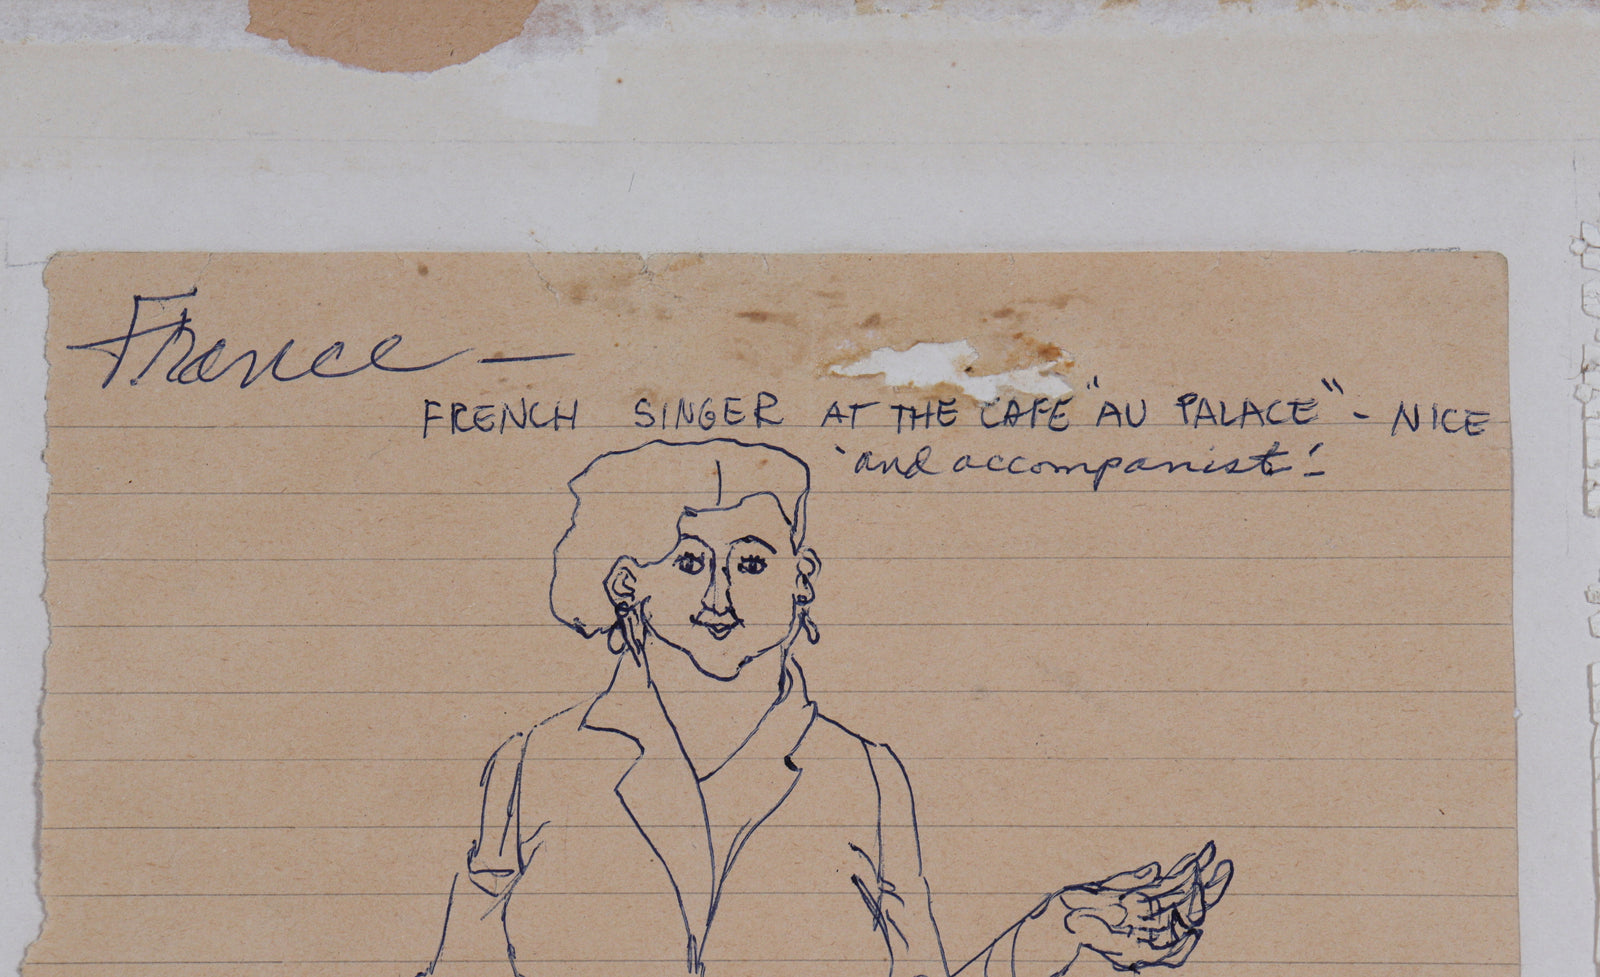 France —
FRENCH SINGER AT THE CAFE "AU PALACE" - NICE
'and accompanist'-